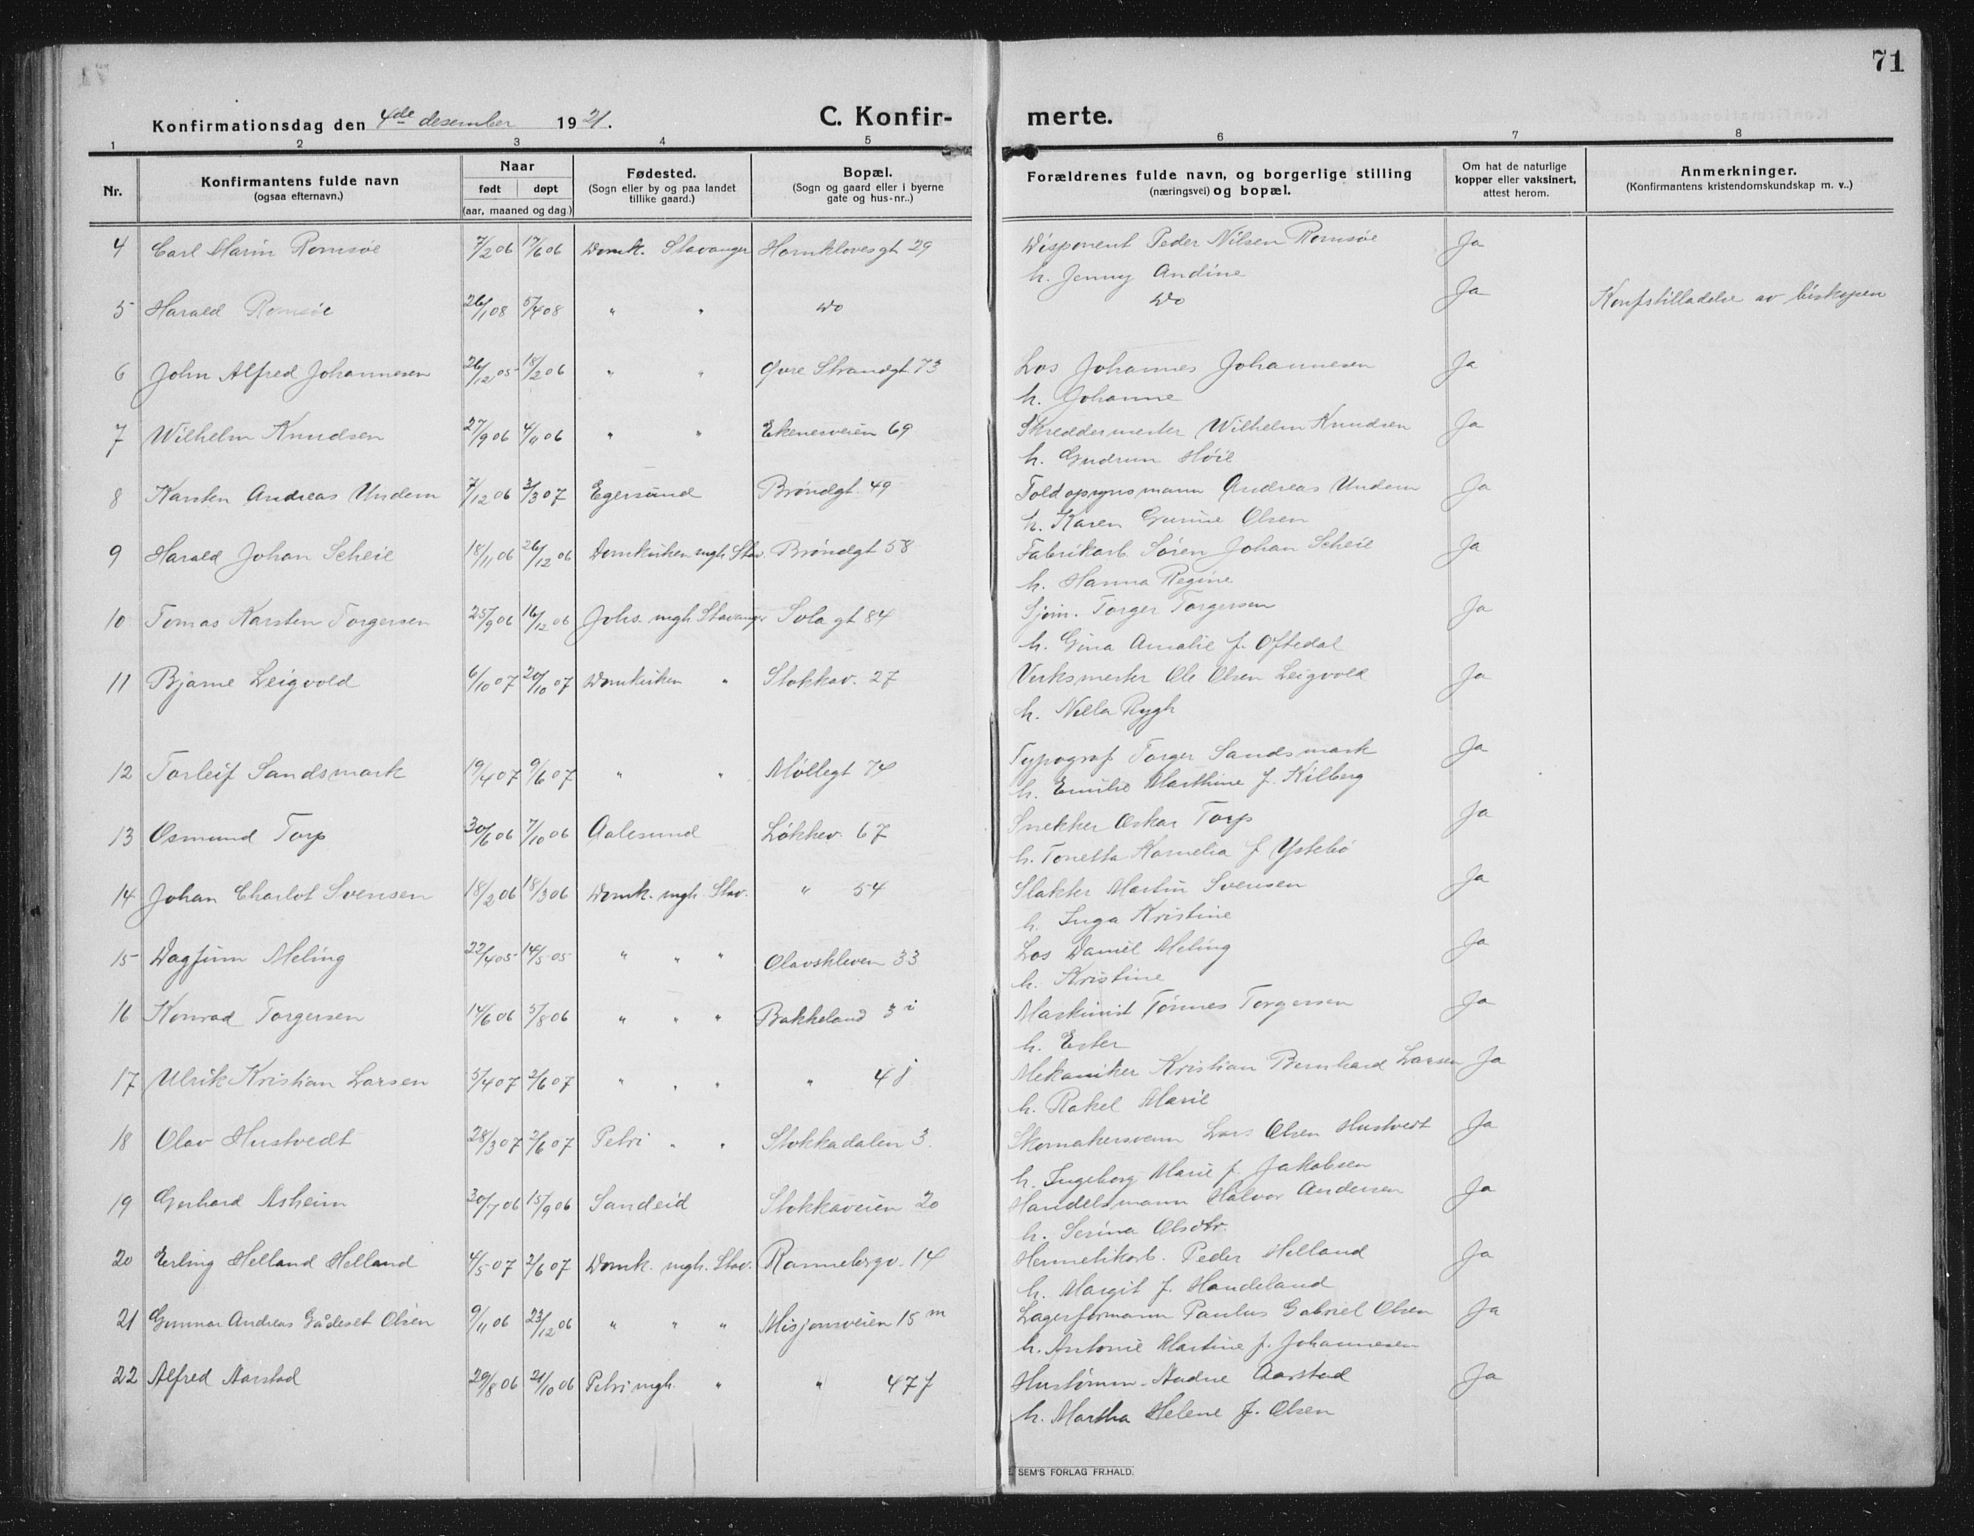 71
Konfirmationsdag den 4de desember 1921.
C. Konfirmerte.
1 2 3 4 5 6 7 8
Nr.
Konfirmantens fulde navn
(ogsaa efternavn.)
Naar
født døpt
(aar, maaned og dag)
Fødested.
(Sogn eller by og paa landet
tillike gaard.)
Bopæl.
(Sogn og gaard eller i byerne
gate og hus-nr.)
Forældrenes fulde navn, og borgerlige stilling
(næringsvei) og bopæl.
Om hat de naturlige
kopper eller vaksinert,
attest herom.
Anmerkninger.
(Konfirmantens kristendomskundskap m. v.)
4 Carl Marin Romsøe 7/2 06 17/6 06 Domk. Stavanger Hornklovesgt 29 Disponent Peder Nilsen Romsøe Ja
h. Jenny Andine
5 Harald Romsøe 26/1 08 5/4 08 " " Do Do Ja Konfstilladelse av biskopen
6 John Alfred Johannesen 26/12 05 18/2 06 " " Øvre Strandgt 73 Los Johannes Johannesen Ja
h. Johanne
7 Wilhelm Knudsen 27/9 06 4/11 06 " " Ekenesveien 69 Skreddermester Wilhelm Knudsen Ja
h. Gudrun Høie
8 Karsten Andreas Undem 7/12 06 3/3 07 Egersund Brøndgt. 49 Toldopsynsmann Andreas Undem Ja
h. Karen Gurine Olsen
9 Harald Johan Scheie 18/11 06 26/12 06 Domkirken mgh Stav. Brøndgt 58 Fabrikarb. Søren Johan Scheie Ja
h. Hanna Regine
10 Tomas Karsten Torgersen 25/9 06 16/12 06 Johs. mgh Stavanger Solagt 84 Sjøm. Torger Torgersen Ja
h. Gina Amalie f. Oftedal
11 Bjarne Leigvold 6/10 07 20/10 07 Domkirken " Stokkav. 27 Verksmester Ole Olsen Leigvold Ja
h. Nilla Rygh
12 Torleif Sandsmark 19/4 07 9/6 07 " " Møllegt 74 Typograf Torger Sandsmark Ja
h. Emilie Marthine f. Kilberg
13 Osmund Torp 30/6 06 7/10 06 Aalesund Løkkev. 67 Snekker Oskar Torp Ja
h. Tonetta Kornelia f Ystebø
14 Johan Charlot Svensen 18/2 06 18/3 06 Domk. mgh. Stav. " 54 Slakter Martin Svensen Ja
h. Inga Kristine
15 Dagfinn Meling 22/4 05 14/5 05 " " " Olavskleven 33 Los Daniel Meling Ja
h. Kristine
16 Konrad Torgersen 14/6 06 5/8 06 " " " Bakkeland 3 i Maskinist Tønnes Torgersen Ja
h. Ester
17 Ulrik Kristian Larsen 5/4 07 2/6 07 " " " " 4 j Mekaniker Kristian Bernhard Larsen Ja
h. Rakel Marie
18 Olav Hustvedt 28/3 07 2/6 07 Petri " " Stokkadalen 3. Skomakersvenn Lars Olsen Hustvedt Ja
h. Ingeborg Marie f. Jakobsen
19 Gerhard Asheim 30/7 06 15/9 06 Sandeid Stokkaveien 20 Handelsmann Halvor Andersen Ja
h. Serina Olsdtr.
20 Erling Helland Helland 4/5 07 2/6 07 Domk. mgh. Stav. Rannebergv. 14 Hermetikarb. Peder Helland Ja
h. Margit f. Handeland
21 Gunnar Andreas Gådeset Olsen 9/11 06 23/12 06 " " " Misjonsveien 15 m Lagerformann Paulus Gabriel Olsen Ja
h. Antonie Martine f. Johannesen
22 Alfred Aarstad 29/8 06 21/10 06 Petri mgh. " " 47 j Hustømm. Andre Aarstad Ja
h. Martha Helene f. Olsen
SEM'S FORLAG FR.HALD.